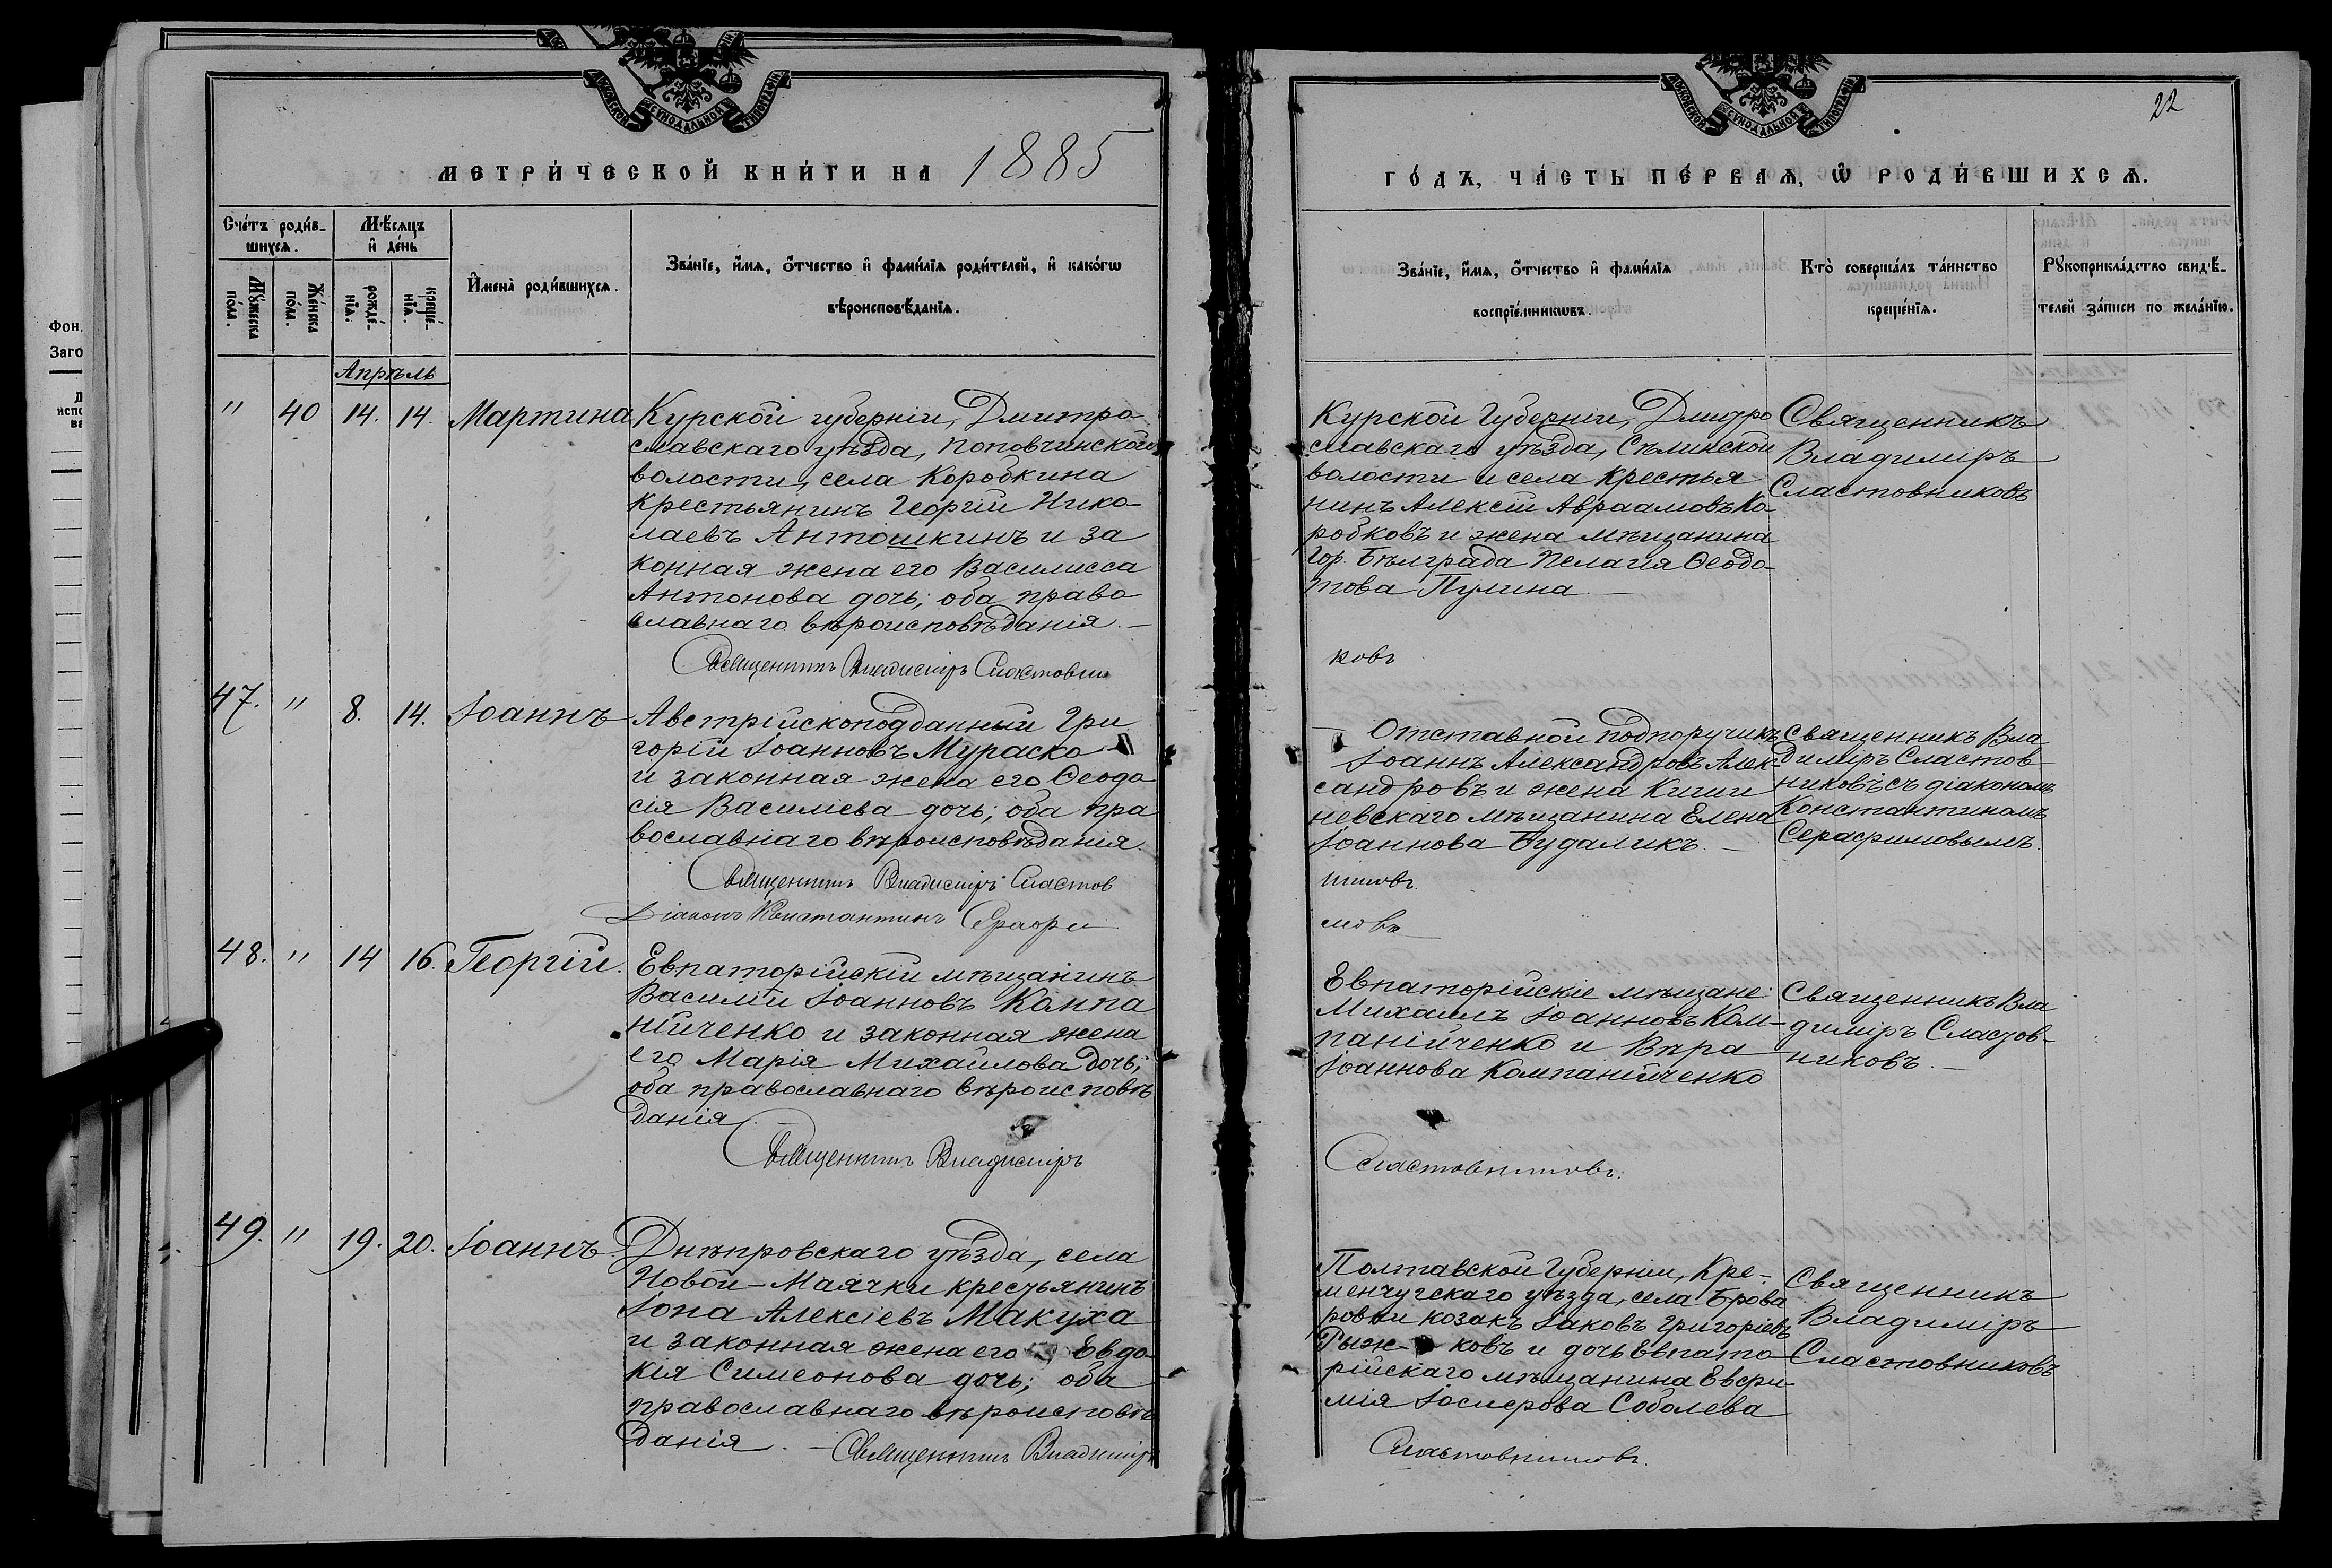 МЕТРИ́ЧЕСКОЙ КНИ́ГИ НА 1885
Сче́тъ роди́в-
шихсѧ.
Мѣ́сѧцъ
и҆ де́нь
Мꙋ́жеска
по́ла.
Же́нска
по́ла.
рожде́-
нїѧ.
креще́-
нїѧ.
И҆мена̀ роди́вшихсѧ.
Зва́нїе, и҆́мѧ, ѻ҆́тчество и҆ фами́лїѧ роди́телей, и҆ како́гѡ
вѣроисповѣ́данїѧ.
Апрѣль
" 40 14. 14. Мартина
Курской губерніи, Дмитро
славскаго уѣзда, Поповчинской
волости, села Коробкина
крестьянинъ Георгій Нико-
лаевъ Антошкинъ и за
конная жена его Василисса
Антонова дочь; оба право
славнаго вѣроисповѣданія. —
Священникъ Владиміръ Сластовни
47. " 8. 14. Іоаннъ
Австрійскоподданный Гри
горій Іоанновъ Мураско
и законная жена его Ѳеодо
сія Василіева дочь; оба пра
вославнаго вѣроисповѣданія.
Священникъ Владиміръ Сластов
Діаконъ Константинъ Серафи
48. " 14 16. Георгій.
Евпаторійскій мѣщанинъ
Василій Іоанновъ Компа
нійченко и законная жена
его Марія Михайлова дочь;
оба православнаго вѣроисповѣ
данія. —
Священникъ Владиміръ
49. " 19. 20. Іоаннъ.
Днѣпровскаго уѣзда, села
Новой-Маячки крестьянинъ
Іона Алексіевъ Макуха
и законная жена его Евдо
кія Симеонова дочь; оба
православнаго вѣроисповѣ
данія. — Священникъ Владиміръ
22
ГО́ДЪ, ЧА́СТЬ ПЕ́РВАѦ, Ѡ҆ РОДИ́ВШИХСѦ.
Зва́нїе, и҆́мѧ, ѻ҆́тчество и҆ фами́лїѧ
воспрїе́мникѡвъ.
Кто̀ соверша́лъ та́инство
креще́нїѧ.
Рꙋкоприкла́дство свидѣ́-
телей за́писи по жела́нїю.
Курской Губерніи, Дмитро
славскаго уѣзда, Сѣлинской
волости и села крестья
нинъ Алексій Авраамовъ Ко-
робковъ и жена мѣщанина
гор. Бѣлграда Пелагія Ѳеодо-
това Пулина —
ковъ
Священникъ
Владиміръ
Сластовниковъ
Отставной подпоручикъ
Іоаннъ Александровъ Алек
сандровъ и жена Киши
невскаго мѣщанина Елена
Іоаннова Будаликъ. —
никовъ.
мовъ
Священникъ Вла
диміръ Сластов
никовъ съ діакономъ
Константиномъ
Серафимовымъ.
Евпаторійскіе мѣщане:
Михаилъ Іоанновъ Ком-
панійченко и Вѣра
Іоаннова Компанійченко
Сластовниковъ.
Священникъ Вла
диміръ Сластов-
никовъ. —
Полтавской Губерніи, Кре-
менчугскаго уѣзда, села Брова
ровки козакъ Іаковъ Григоріевъ
Рыж- ковъ и дочь Евпато
рійскаго мѣщанина Евфи-
мія Іосифова Соболева
Сластовниковъ.
Священникъ
Владиміръ
Сластовниковъ
Фон.
Заго